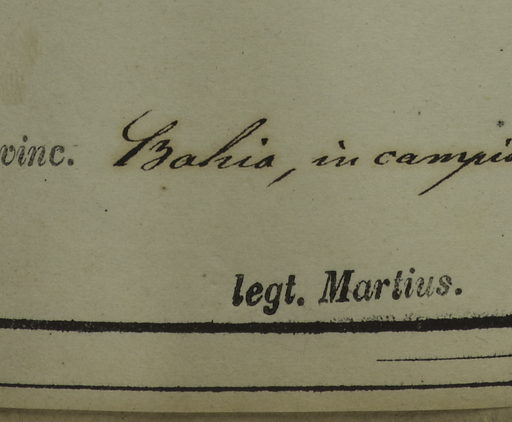 vinc. Bahia, in campi
legt. Martius.